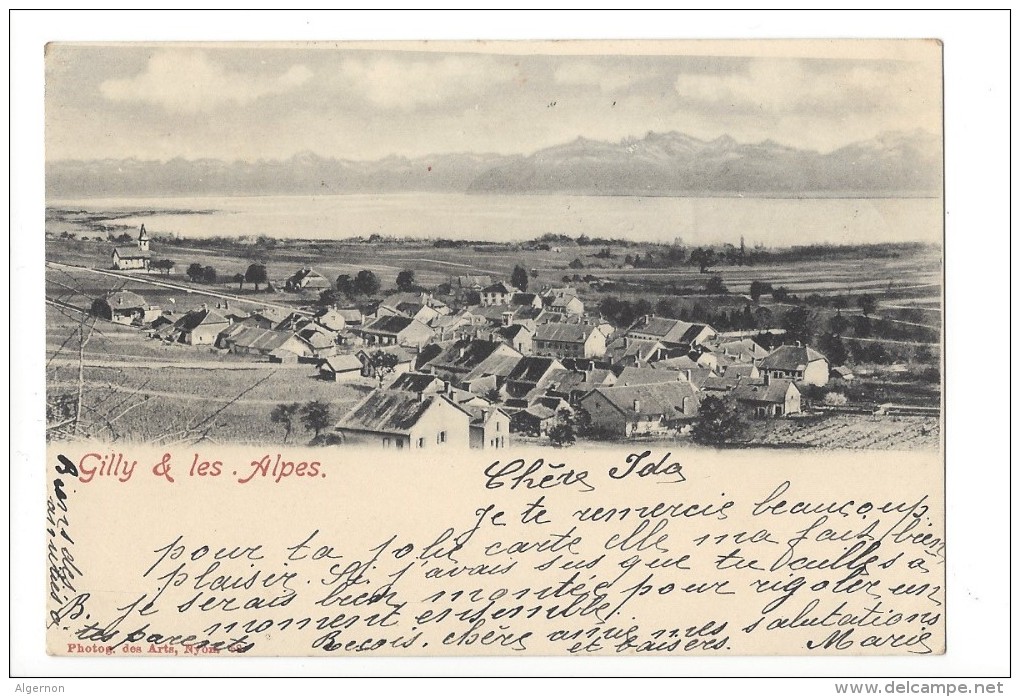 Gilly & les Alpes.
Chère Ida
Je te remercie beaucoup
pour ta jolie carte elle ma fait bien
plaisir. Si j'avais sus que tu veuilles à
je serais bien montée pour rigoler un
moment ensemble.
Reçois, chère amie mes salutations
et baisers. Marie
B.
tes parents
Photog. des Arts, Nyon.
Algernon
www.delcampe.net